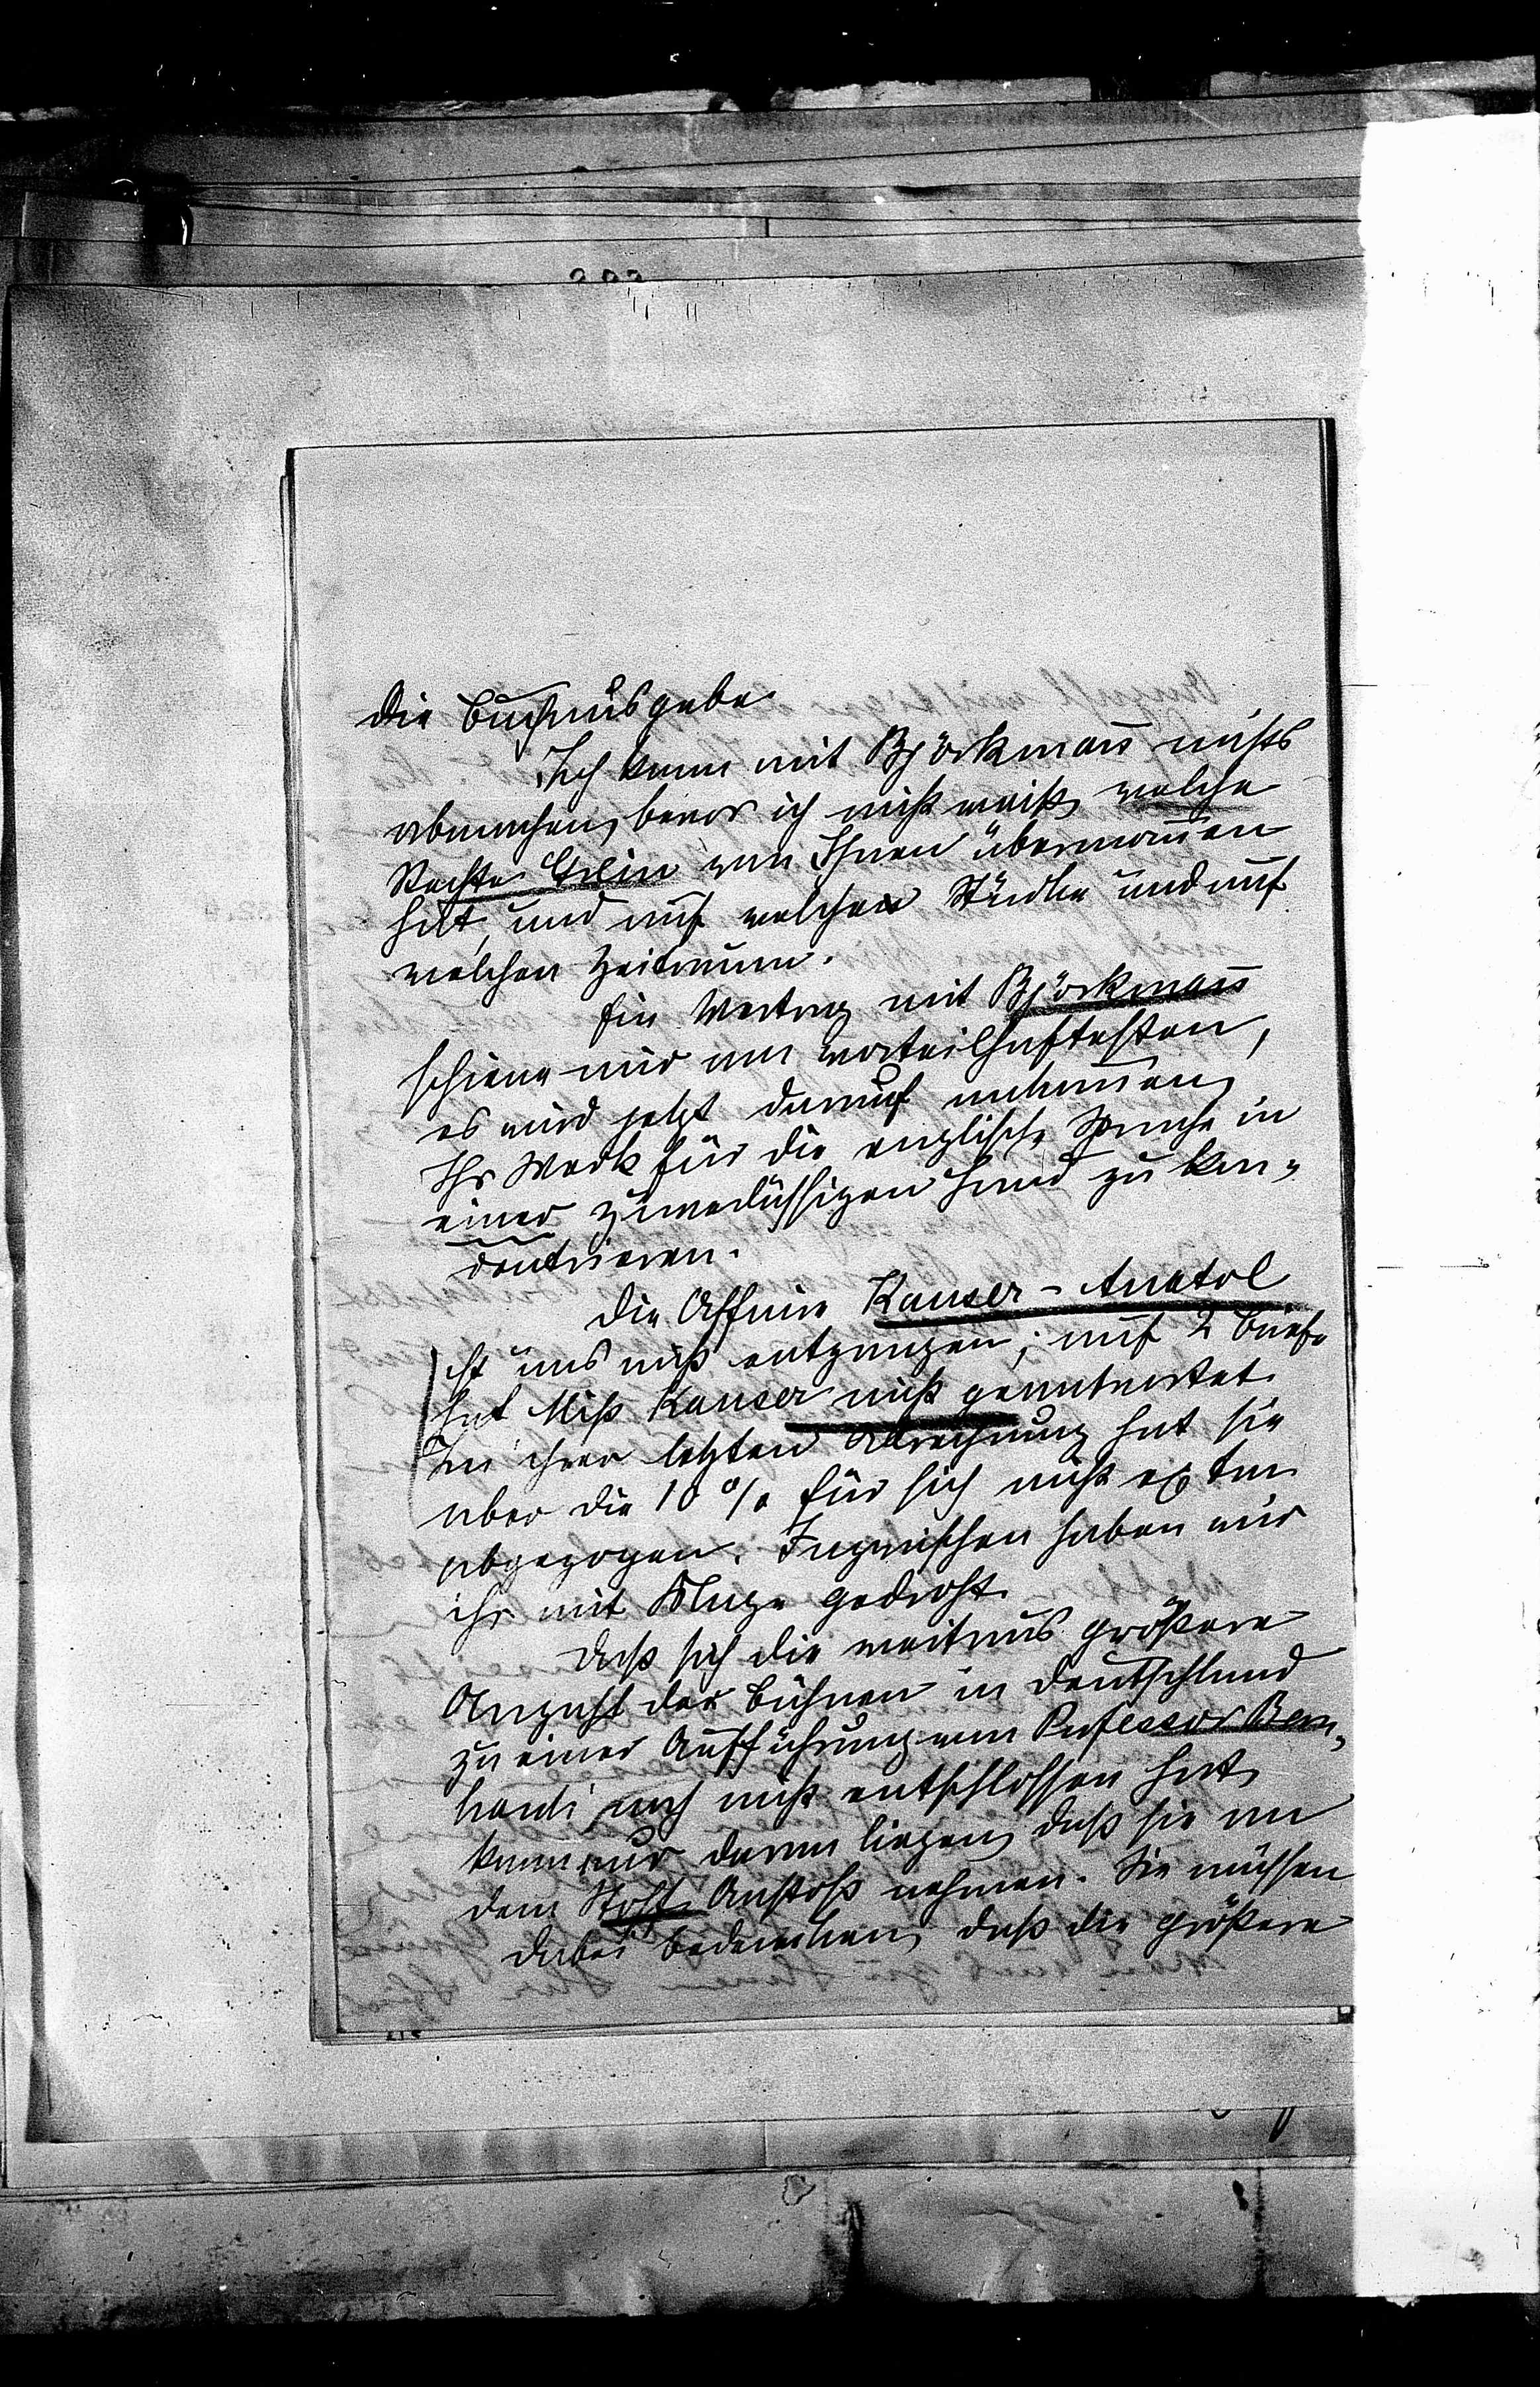 die Buchausgabe.
Ich kann mit Björkman̄ nichts
abmachen, bevor ich nicht weiß, welche
Rechte Grein von Ihnen übernom̄en
hat, und auf welche Stücke und auf
welchen Zeitraum.
Ein Vertrag mit Björkman̄
schiene mir am vorteilhaftesten,
es wird jetzt darauf ankom̄en,
Ihr Werk für die englische Sprache in
einer zuverlässigen Hand zu kon-
zentrieren.
Die Affaire Kauser-Anatol
ist uns nicht entgangen; auf 2 Briefe
hat Miß Kauser nicht geantwortet.
In ihrer letzten Abrechnung hat sie
aber die 10% für sich nicht extra
abgezogen. Inzwischen haben wir
ihr mit Klage gedroht.
Daß sich die weitaus größere
Anzahl der Bühnen in Deutschland
zu einer Aufführung von Professor Bern-
hardi noch nicht entschlossen hat,
kann nur daran liegen, daß sie an
dem Stoffe Anstoß nehmen. Sie müssen
dabei bedenken, daß die größere